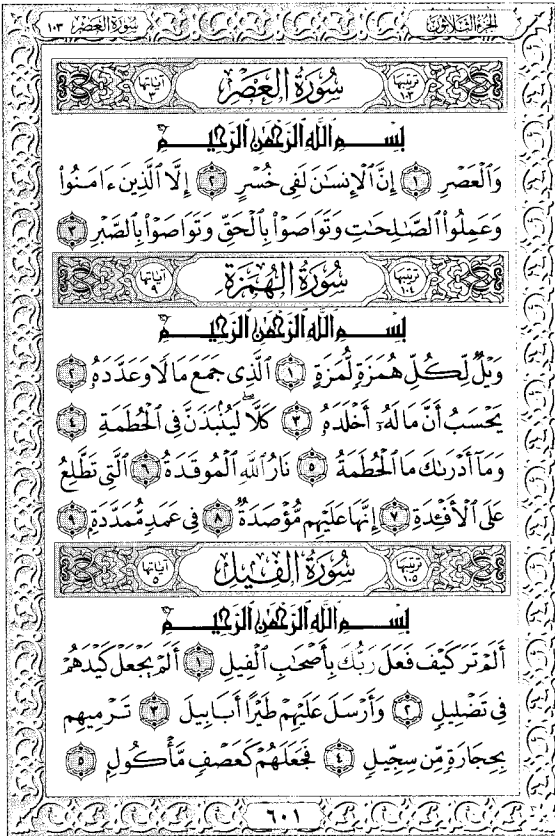 الجزء الثلاثون سورة العصر ١٠٣
ترتيبها ١٠٣ سُورَةُ العَصْرِ آياتها ٣
بِسْمِ اللَّهِ الرَّحْمَٰنِ الرَّحِيمِ
وَٱلْعَصْرِ ١ إِنَّ ٱلْإِنسَٰنَ لَفِى خُسْرٍ ٢ إِلَّا ٱلَّذِينَ ءَامَنُوا۟
وَعَمِلُوا۟ ٱلصَّٰلِحَٰتِ وَتَوَاصَوْا۟ بِٱلْحَقِّ وَتَوَاصَوْا۟ بِٱلصَّبْرِ ٣
ترتيبها ١٠٤ سُورَةُ الهُمَزَةِ آياتها ٩
بِسْمِ اللَّهِ الرَّحْمَٰنِ الرَّحِيمِ
وَيْلٌ لِّكُلِّ هُمَزَةٍ لُّمَزَةٍ ١ ٱلَّذِى جَمَعَ مَالًا وَعَدَّدَهُۥ ٢
يَحْسَبُ أَنَّ مَالَهُۥٓ أَخْلَدَهُۥ ٣ كَلَّا ۖ لَيُنۢبَذَنَّ فِى ٱلْحُطَمَةِ ٤
وَمَآ أَدْرَىٰكَ مَا ٱلْحُطَمَةُ ٥ نَارُ ٱللَّهِ ٱلْمُوقَدَةُ ٦ ٱلَّتِى تَطَّلِعُ
عَلَى ٱلْأَفْـِٔدَةِ ٧ إِنَّهَا عَلَيْهِم مُّؤْصَدَةٌ ٨ فِى عَمَدٍ مُّمَدَّدَةٍۭ ٩
ترتيبها ١٠٥ سُورَةُ الفِيلِ آياتها ٥
بِسْمِ اللَّهِ الرَّحْمَٰنِ الرَّحِيمِ
أَلَمْ تَرَ كَيْفَ فَعَلَ رَبُّكَ بِأَصْحَٰبِ ٱلْفِيلِ ١ أَلَمْ يَجْعَلْ كَيْدَهُمْ
فِى تَضْلِيلٍ ٢ وَأَرْسَلَ عَلَيْهِمْ طَيْرًا أَبَابِيلَ ٣ تَرْمِيهِم
بِحِجَارَةٍ مِّن سِجِّيلٍ ٤ فَجَعَلَهُمْ كَعَصْفٍ مَّأْكُولٍۭ ٥
٦٠١